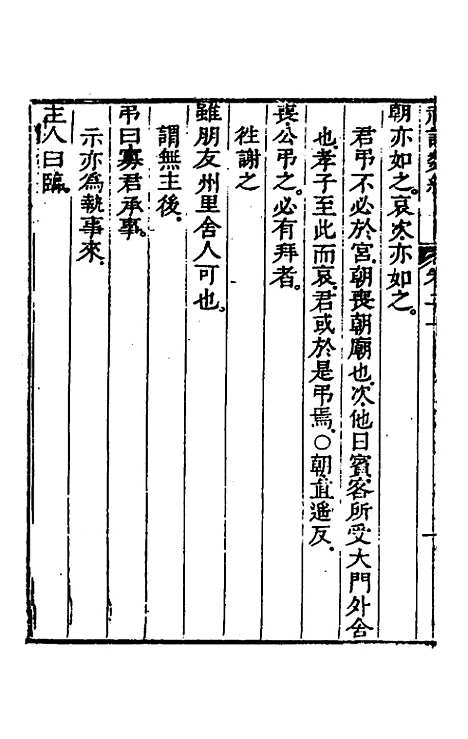 朝亦如之。哀次亦如之。
君弔不必於宮。朝喪朝廟也。次他日賓客所受大門外舍
也。孝子至此而哀。君或於是弔焉。○朝直遥反。
喪公弔之。必有拜者。
徃謝之
雖朋友州里舍人可也。
謂無主後。
弔曰寡君承事。
示亦為執事來。
主人曰臨。